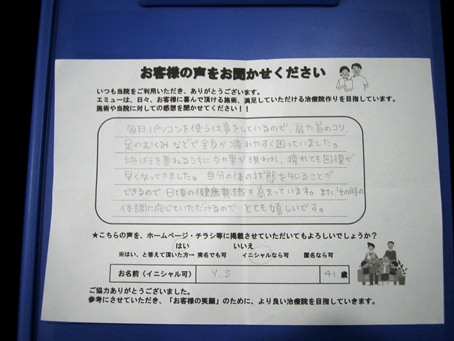 お客様の声をお聞かせください
いつも当院をご利用いただき、ありがとうございます。
エミューは、日々、お客様に喜んで頂ける施術、満足していただける治療院作りを目指しています。
施術や当院に対しての感想をお聞かせください！
毎日パソコンを使う仕事をしているので、肩や首のコリ
足のむくみなどで全身が疲れやすく困っていました。
早くなってきました。自分の体の状態を知ることが
できるので日頃の健康意識も高まっています。また、その時の
体調に応じていただけるので とても嬉しいです。
★こちらの声を、ホームページ・チラシ等に掲載させていただいてもよろしいでしょうか？
はい いいえ
※はい、と答えて頂いた方→ 実名でも可 イニシャルなら可 匿名なら可
お名前（イニシャル可） Y.S 41 歳
ご協力ありがとうございました。
参考にさせていただき、「お客様の笑顔」のために、より良い治療院を目指していきます。